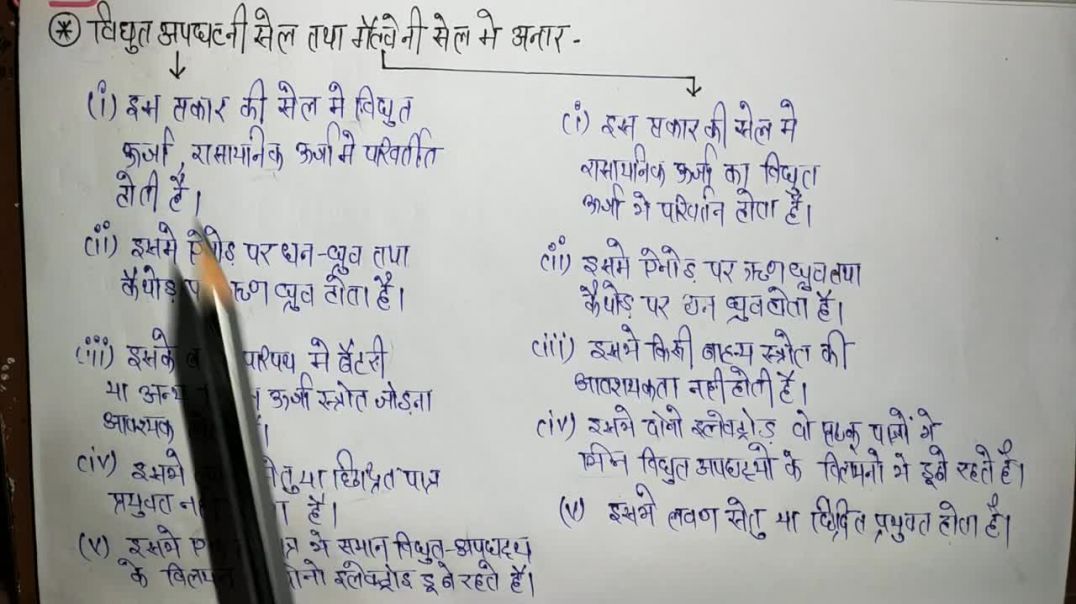 * विद्युत अपघटनी सेल तथा गैल्वेनी सेल मे अन्तर -
(i) इस प्रकार की सेल मे विद्युत
ऊर्जा, रासायनिक ऊर्जा मे परिवर्तीत
होती है।
(ii) इसमे ऐनोड़ पर धन-ध्रुव तथा
कैथोड़ ऋण ध्रुव होता है।
(iii) इसके परिपथ मे बैटरी
या अन्य ऊर्जा स्त्रोत जोड़ना
आवश्यक
(iv) इसमे या छिद्रित पात्र
प्रयुक्त है।
(v) इसमे मे समान विद्युत-अपघट्य
के इलेक्ट्रोड डूबे रहते हैं।
(i) इस प्रकार की सेल मे
रासायनिक ऊर्जा का विद्युत
ऊर्जा मे परिवर्तन होता है।
(ii) इसमे ऐनोड़ पर ऋण ध्रुव तथा
कैथोड़ पर धन ध्रुव होता है।
(iii) इसमे किसी बाहय स्त्रोत की
आवश्यकता नही होती है।
(iv) इसमे दोनो इलेक्ट्रोड़ दो पृथक पात्रों मे
भिन्न विद्युत अपघट्यो के विलयनो मे डूबे रहते है।
(v) इसमे लवण सेतु या छिद्रित प्रयुक्त होता है।